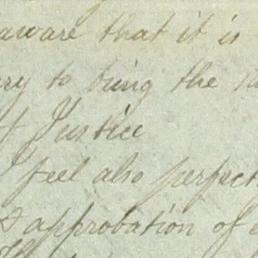 aware that it is
ry to bring the
of Justice
I feel also perfect
& approbation of